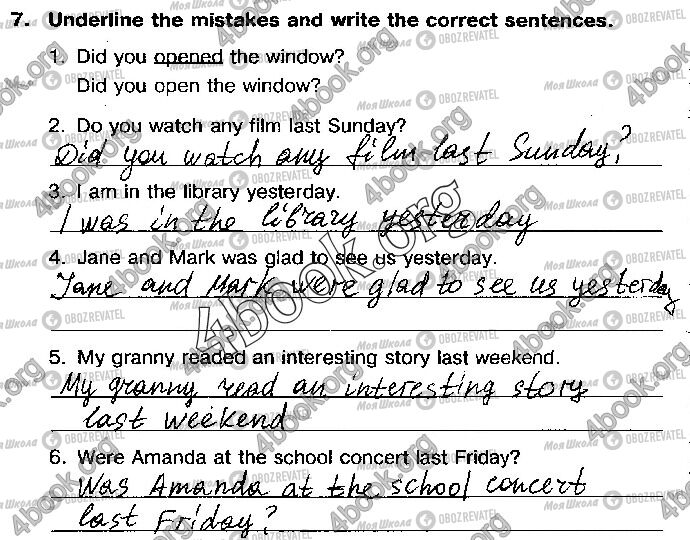 7. Underline the mistakes and write the correct sentences.
1. Did you opened the window?
Did you open the window?
2. Do you watch any film last Sunday?
Did you watch any film last Sunday?
3. I am in the library yesterday.
I was in the library yesterday
4. Jane and Mark was glad to see us yesterday.
Jane and Mark were glad to see us yesterday
5. My granny readed an interesting story last weekend.
My granny read an interesting story
last weekend
6. Were Amanda at the school concert last Friday?
Was Amanda at the school concert
last Friday?
4book.org
МояШкола OBOZREVATEL